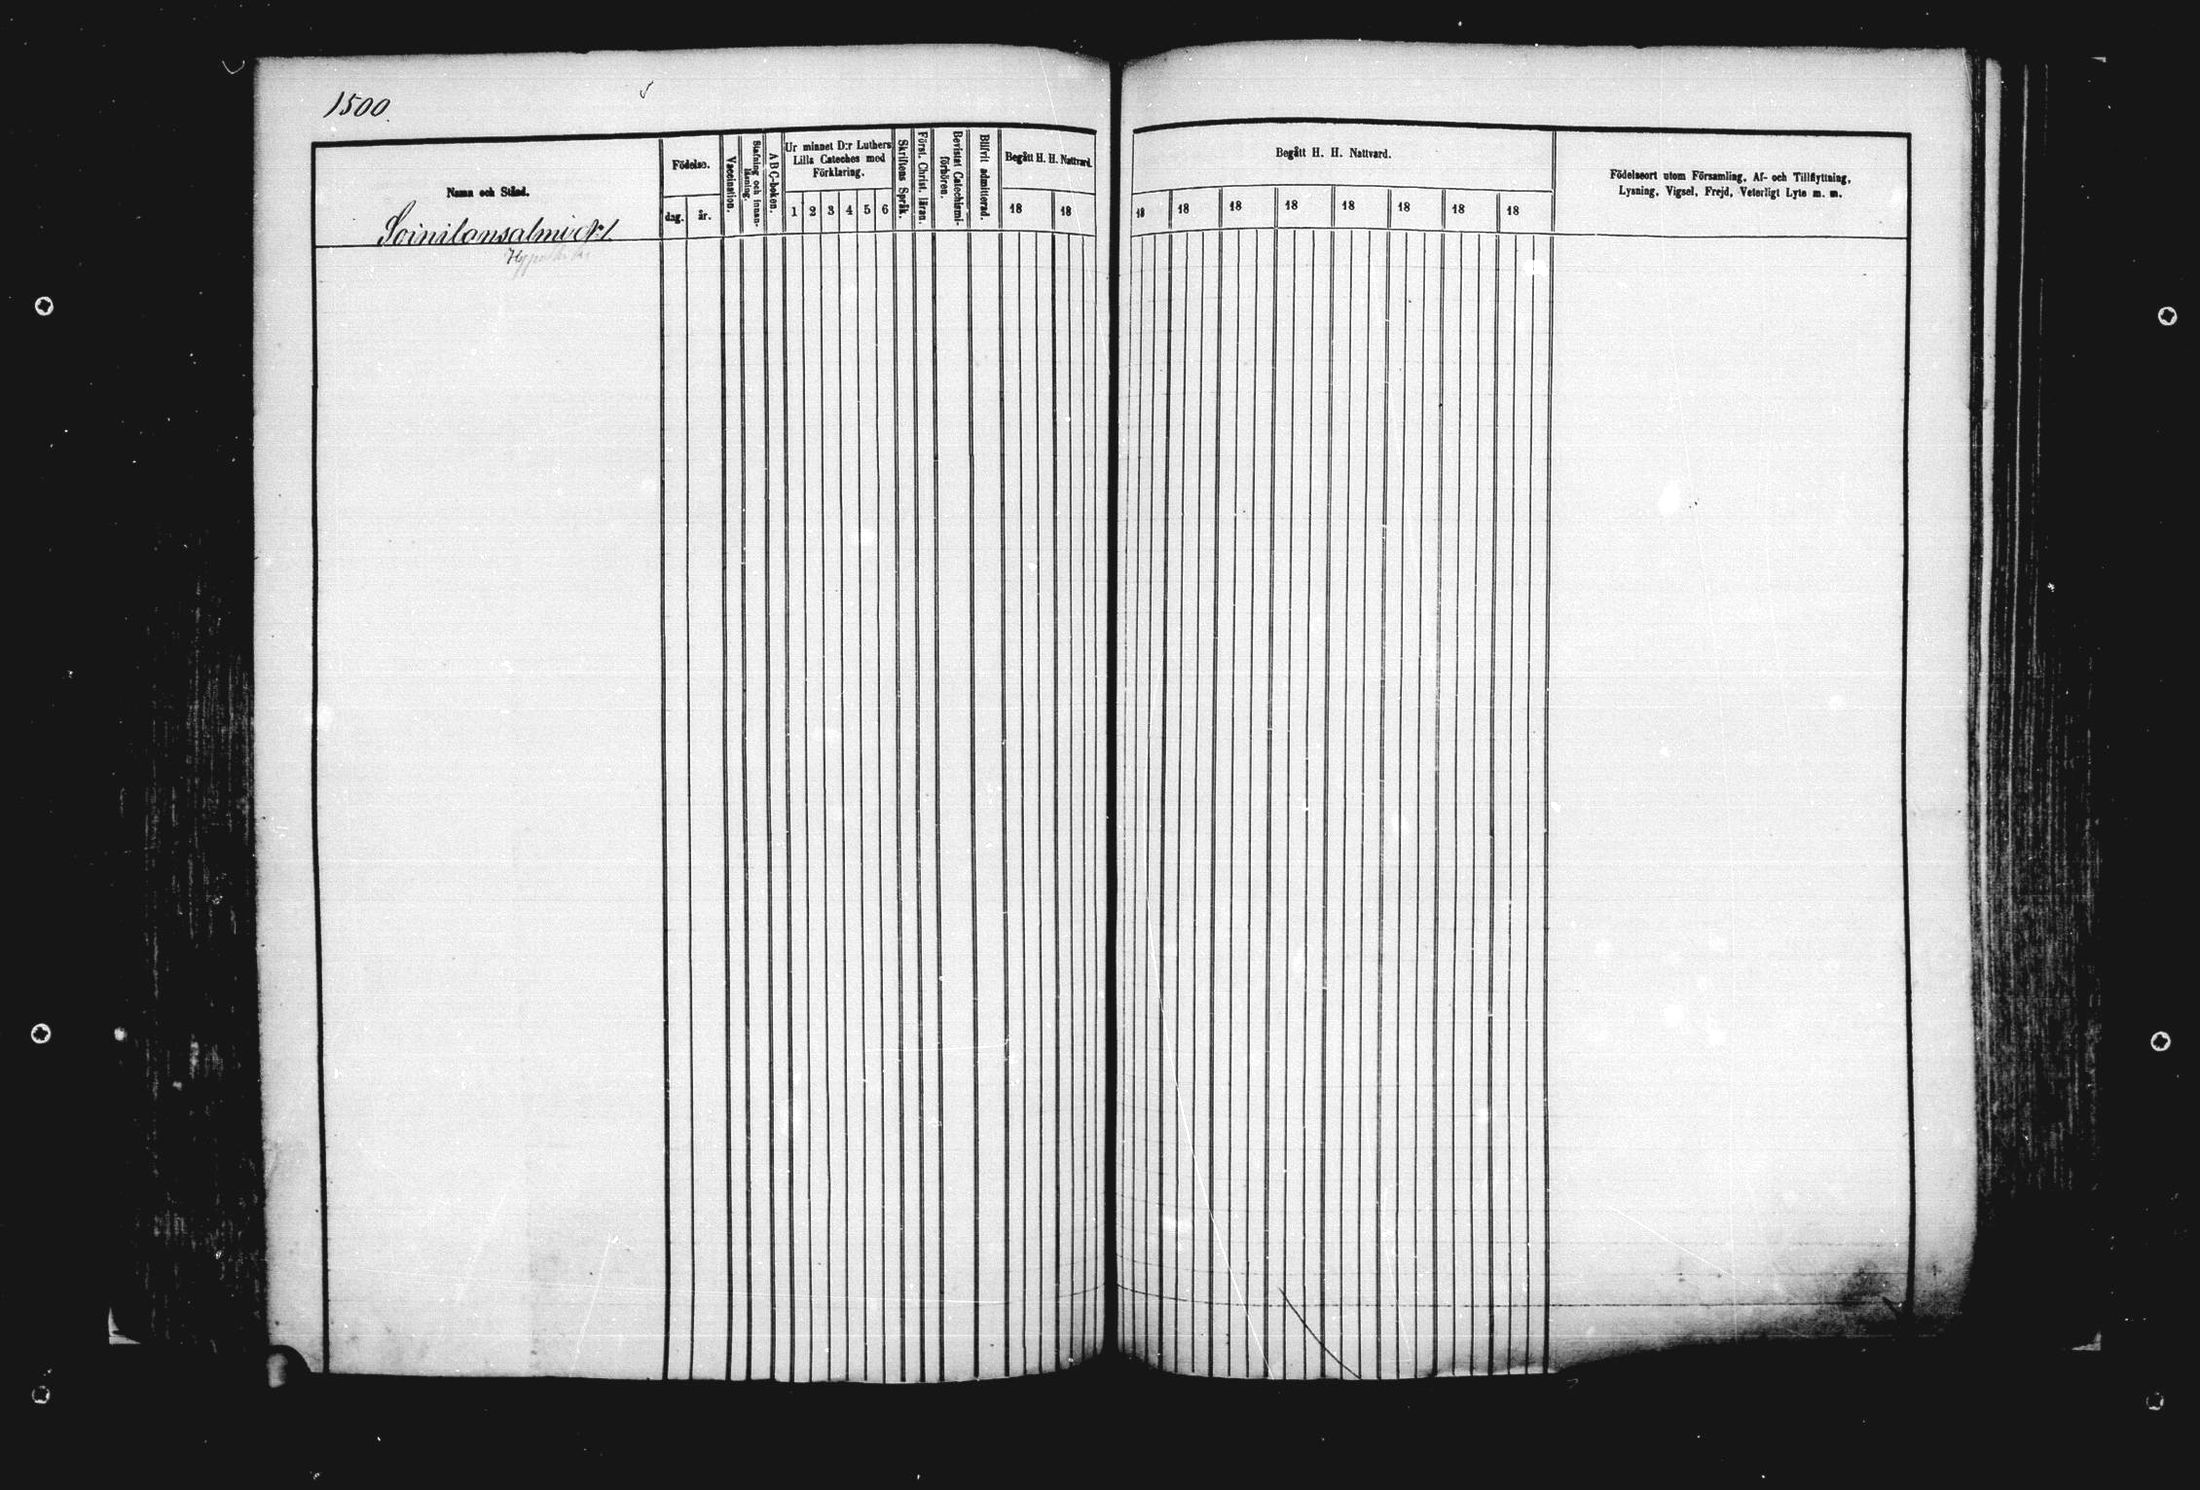 1500.
Namn och Stånd.
Soinilansalmi N:1
Födelse.
dag.
år.
Vaccination.
Stafning och innan-
läsning.
A B C-boken.
Ur minnet D:r Luthers
Lilla Cateches med
Förklaring.
1 2 3 4 5 6
Skriftens Språk.
Först. Christ. läran.
Bevistat Catechismi-
förhören.
Blifvit admitterad.
Begått H. H. Nattvard.
18 18
Begått H. H. Nattvard.
18 18 18 18 18 18 18 18
Födelseort utom Församling, Af- och Tillflyttning,
Lysning, Vigsel, Frejd, Veterligt Lyte m. m.